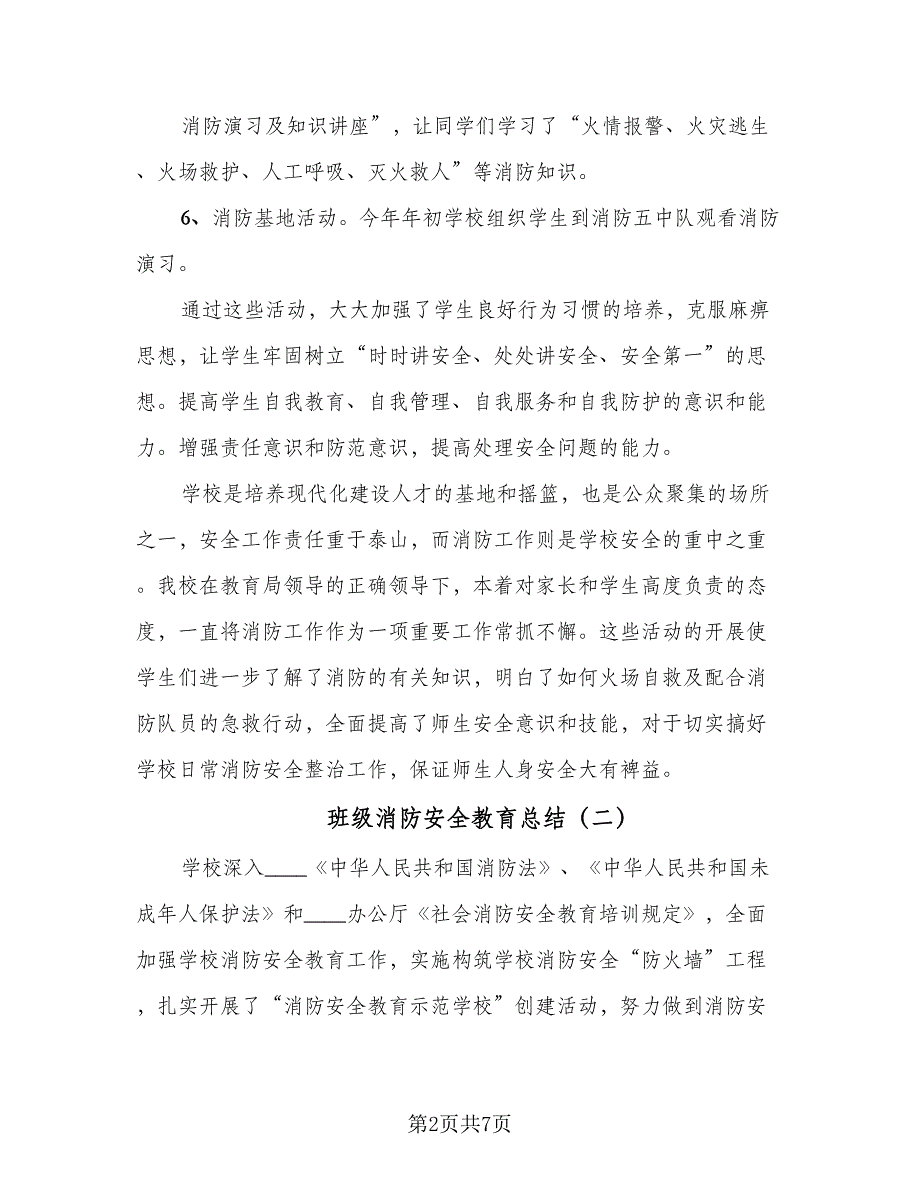 消防演习及知识讲座”，让同学们学习了“火情报警、火灾逃生
、火场救护、人工呼吸、灭火救人”等消防知识。
6、消防基地活动。今年年初学校组织学生到消防五中队观看消防
演习。
通过这些活动，大大加强了学生良好行为习惯的培养，克服麻痹
思想，让学生牢固树立“时时讲安全、处处讲安全、安全第一”的思
想。提高学生自我教育、自我管理、自我服务和自我防护的意识和能
力。增强责任意识和防范意识，提高处理安全问题的能力。
学校是培养现代化建设人才的基地和摇篮，也是公众聚集的场所
之一，安全工作责任重于泰山，而消防工作则是学校安全的重中之重
。我校在教育局领导的正确领导下，本着对家长和学生高度负责的态
度，一直将消防工作作为一项重要工作常抓不懈。这些活动的开展使
学生们进一步了解了消防的有关知识，明白了如何火场自救及配合消
防队员的急救行动，全面提高了师生安全意识和技能，对于切实搞好
学校日常消防安全整治工作，保证师生人身安全大有裨益。
班级消防安全教育总结（二）
学校深入____《中华人民共和国消防法》、《中华人民共和国未
成年人保护法》和____办公厅《社会消防安全教育培训规定》，全面
加强学校消防安全教育工作，实施构筑学校消防安全“防火墙”工程
，扎实开展了“消防安全教育示范学校”创建活动，努力做到消防安
第2页共7页